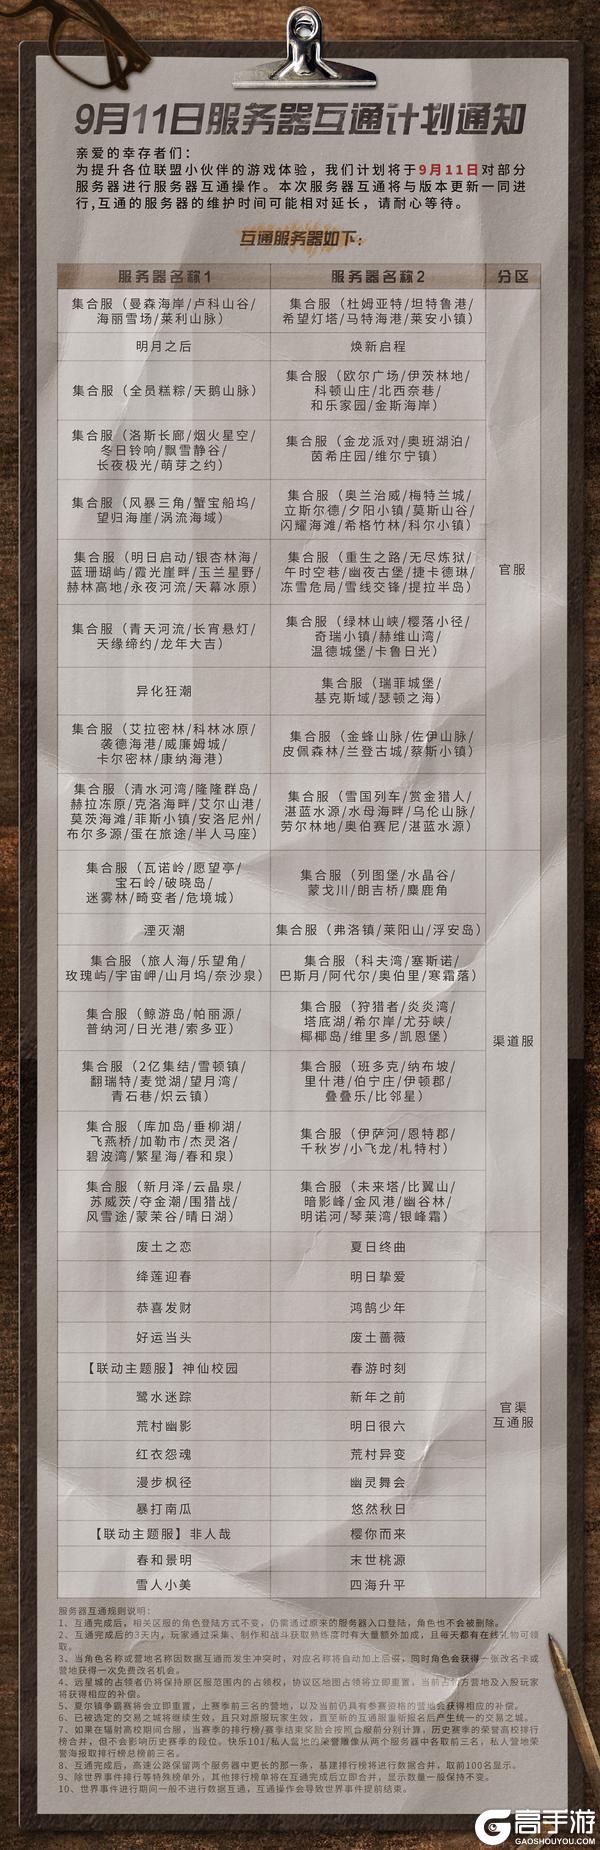 9月11日服务器互通计划通知
亲爱的幸存者们：
为提升各位联盟小伙伴的游戏体验，我们计划将于9月11日对部分
服务器进行服务器互通操作。本次服务器互通将与版本更新一同进
行,互通的服务器的维护时间可能相对延长，请耐心等待。
互通服务器如下：
服务器名称1 服务器名称2 分区
集合服（曼森海岸/卢科山谷/
海丽雪场/莱利山脉）
集合服（杜姆亚特/坦特鲁港/
希望灯塔/马特海港/莱安小镇）
明月之后 焕新启程
集合服（全员糕粽/天鹅山脉）
集合服（欧尔广场/伊茨林地/
科顿山庄/北西奈巷/
和乐家园/金斯海岸）
集合服（洛斯长廊/烟火星空/
冬日铃响/飘雪静谷/
长夜极光/萌芽之约）
集合服（金龙派对/奥班湖泊/
茵希庄园/维尔宁镇）
集合服（风暴三角/蟹宝船坞/
望归海崖/涡流海域）
集合服（奥兰治威/梅特兰城/
立斯尔德/夕阳小镇/莫斯山谷/
闪耀海滩/希格竹林/科尔小镇）
集合服（明日启动/银杏林海/
蓝珊瑚屿/霞光崖畔/玉兰星野/
赫林高地/永夜河流/天幕冰原）
集合服（重生之路/无尽炼狱/
午时空巷/幽夜古堡/捷卡德琳/
冻雪危局/雪线交锋/提拉半岛）
官服
集合服（青天河流/长宵悬灯/
天缘缔约/龙年大吉）
集合服（绿林山峡/樱落小径/
奇瑞小镇/赫维山湾/
温德城堡/卡鲁日光）
异化狂潮
集合服（瑞菲城堡/
基克斯域/瑟顿之海）
集合服（艾拉密林/科林冰原/
袭德海港/威廉姆城/
卡尔密林/康纳海港）
集合服（金蜂山脉/佐伊山脉/
皮佩森林/兰登古城/蔡斯小镇）
集合服（清水河湾/隆隆群岛/
赫拉冻原/克洛海畔/艾尔山港/
莫茨海滩/菲斯小镇/安洛尼州/
布尔多源/蛋在旅途/半人马座）
集合服（雪国列车/赏金猎人/
湛蓝水源/水母海畔/乌伦山脉/
劳尔林地/奥伯赛尼/湛蓝水源）
集合服（瓦诺岭/愿望亭/
宝石岭/破晓岛/
迷雾林/畸变者/危境城）
集合服（列图堡/水晶谷/
蒙戈川/朗吉桥/麋鹿角
湮灭潮 集合服（弗洛镇/莱阳山/浮安岛）
集合服（旅人海/乐望角/
玫瑰屿/宇宙岬/山月坞/奈沙泉）
集合服（科夫湾/塞斯诺/
巴斯月/阿代尔/奥伯里/寒霜落）
集合服（鲸游岛/帕丽源/
普纳河/日光港/索多亚）
集合服（狩猎者/炎炎湾/
塔底湖/希尔岸/尤芬峡/
椰椰岛/维里多/凯恩堡）
渠道服
集合服（2亿集结/雪顿镇/
翻瑞特/麦觉湖/望月湾/
青石巷/炽云镇）
集合服（班多克/纳布坡/
里什港/伯宁庄/伊顿郡/
叠叠乐/比邻星）
集合服（库加岛/垂柳湖/
飞燕桥/加勒市/杰灵洛/
碧波湾/繁星海/春和泉）
集合服（伊萨河/恩特郡/
千秋岁/小飞龙/札特村）
集合服（新月泽/云晶泉/
苏威茨/夺金潮/围猎战/
风雪途/蒙茉谷/晴日湖）
集合服（未来塔/比翼山/
暗影峰/金风港/幽谷林/
明诺河/琴莱湾/银峰霜）
废土之恋 夏日终曲
绛莲迎春 明日挚爱
恭喜发财 鸿鹄少年
好运当头 废土蔷薇
【联动主题服】神仙校园 春游时刻
鹭水迷踪 新年之前
官渠
互通服
荒村幽影 明日很六
红衣怨魂 荒村异变
漫步枫径 幽灵舞会
暴打南瓜 悠然秋日
【联动主题服】非人哉 樱你而来
春和景明 末世桃源
雪人小美 四海升平
服务器互通规则说明：
1、互通完成后，相关区服的角色登陆方式不变，仍需通过原来的服务器入口登陆，角色也不会被删除。
2、互通完成后的3天内，玩家通过采集、制作和战斗获取熟练度时有大量额外加成，且每天都有在线礼物可领
取。
3、当角色名称或营地名称因数据互通而发生冲突时，对应名称将自动加上后缀，同时角色会获得一张改名卡或
营地获得一次免费改名机会。
4、远星城的占领者仍将保持原区服范围内的占领权，协议区地图占领将立即重置，当前占领方营地及入股玩家
将获得相应的补偿。
5、夏尔镇争霸赛将会立即重置，上赛季前三名的营地，以及当前仍具有参赛资格的营地会获得相应的补偿。
6、已被选定的交易之城将继续生效，且只对原服玩家生效，直至新的互通服重新报名后产生统一的交易之城。
7、如果在辐射高校期间合服，当赛季的排行榜/赛季结束奖励会按照合服前分别计算，历史赛季的荣誉高校排行
榜合并，但不会影响历史赛季的段位。快乐101/私人营地的荣誉雕像从两个服务器中各取前三名，私人营地荣
誉海报取排行榜总榜前三名。
8、互通完成后，高速公路保留两个服务器中更长的那一条，基建排行榜将进行数据合并，取前100名显示。
9、除世界事件排行等特殊榜单外，其他排行榜单将在互通完成后立即合并，显示数量一般保持不变。
10、世界事件进行期间一般不进行数据互通，互通操作会导致世界事件提前结束。
高手游
GAOSHOUYOU.COM